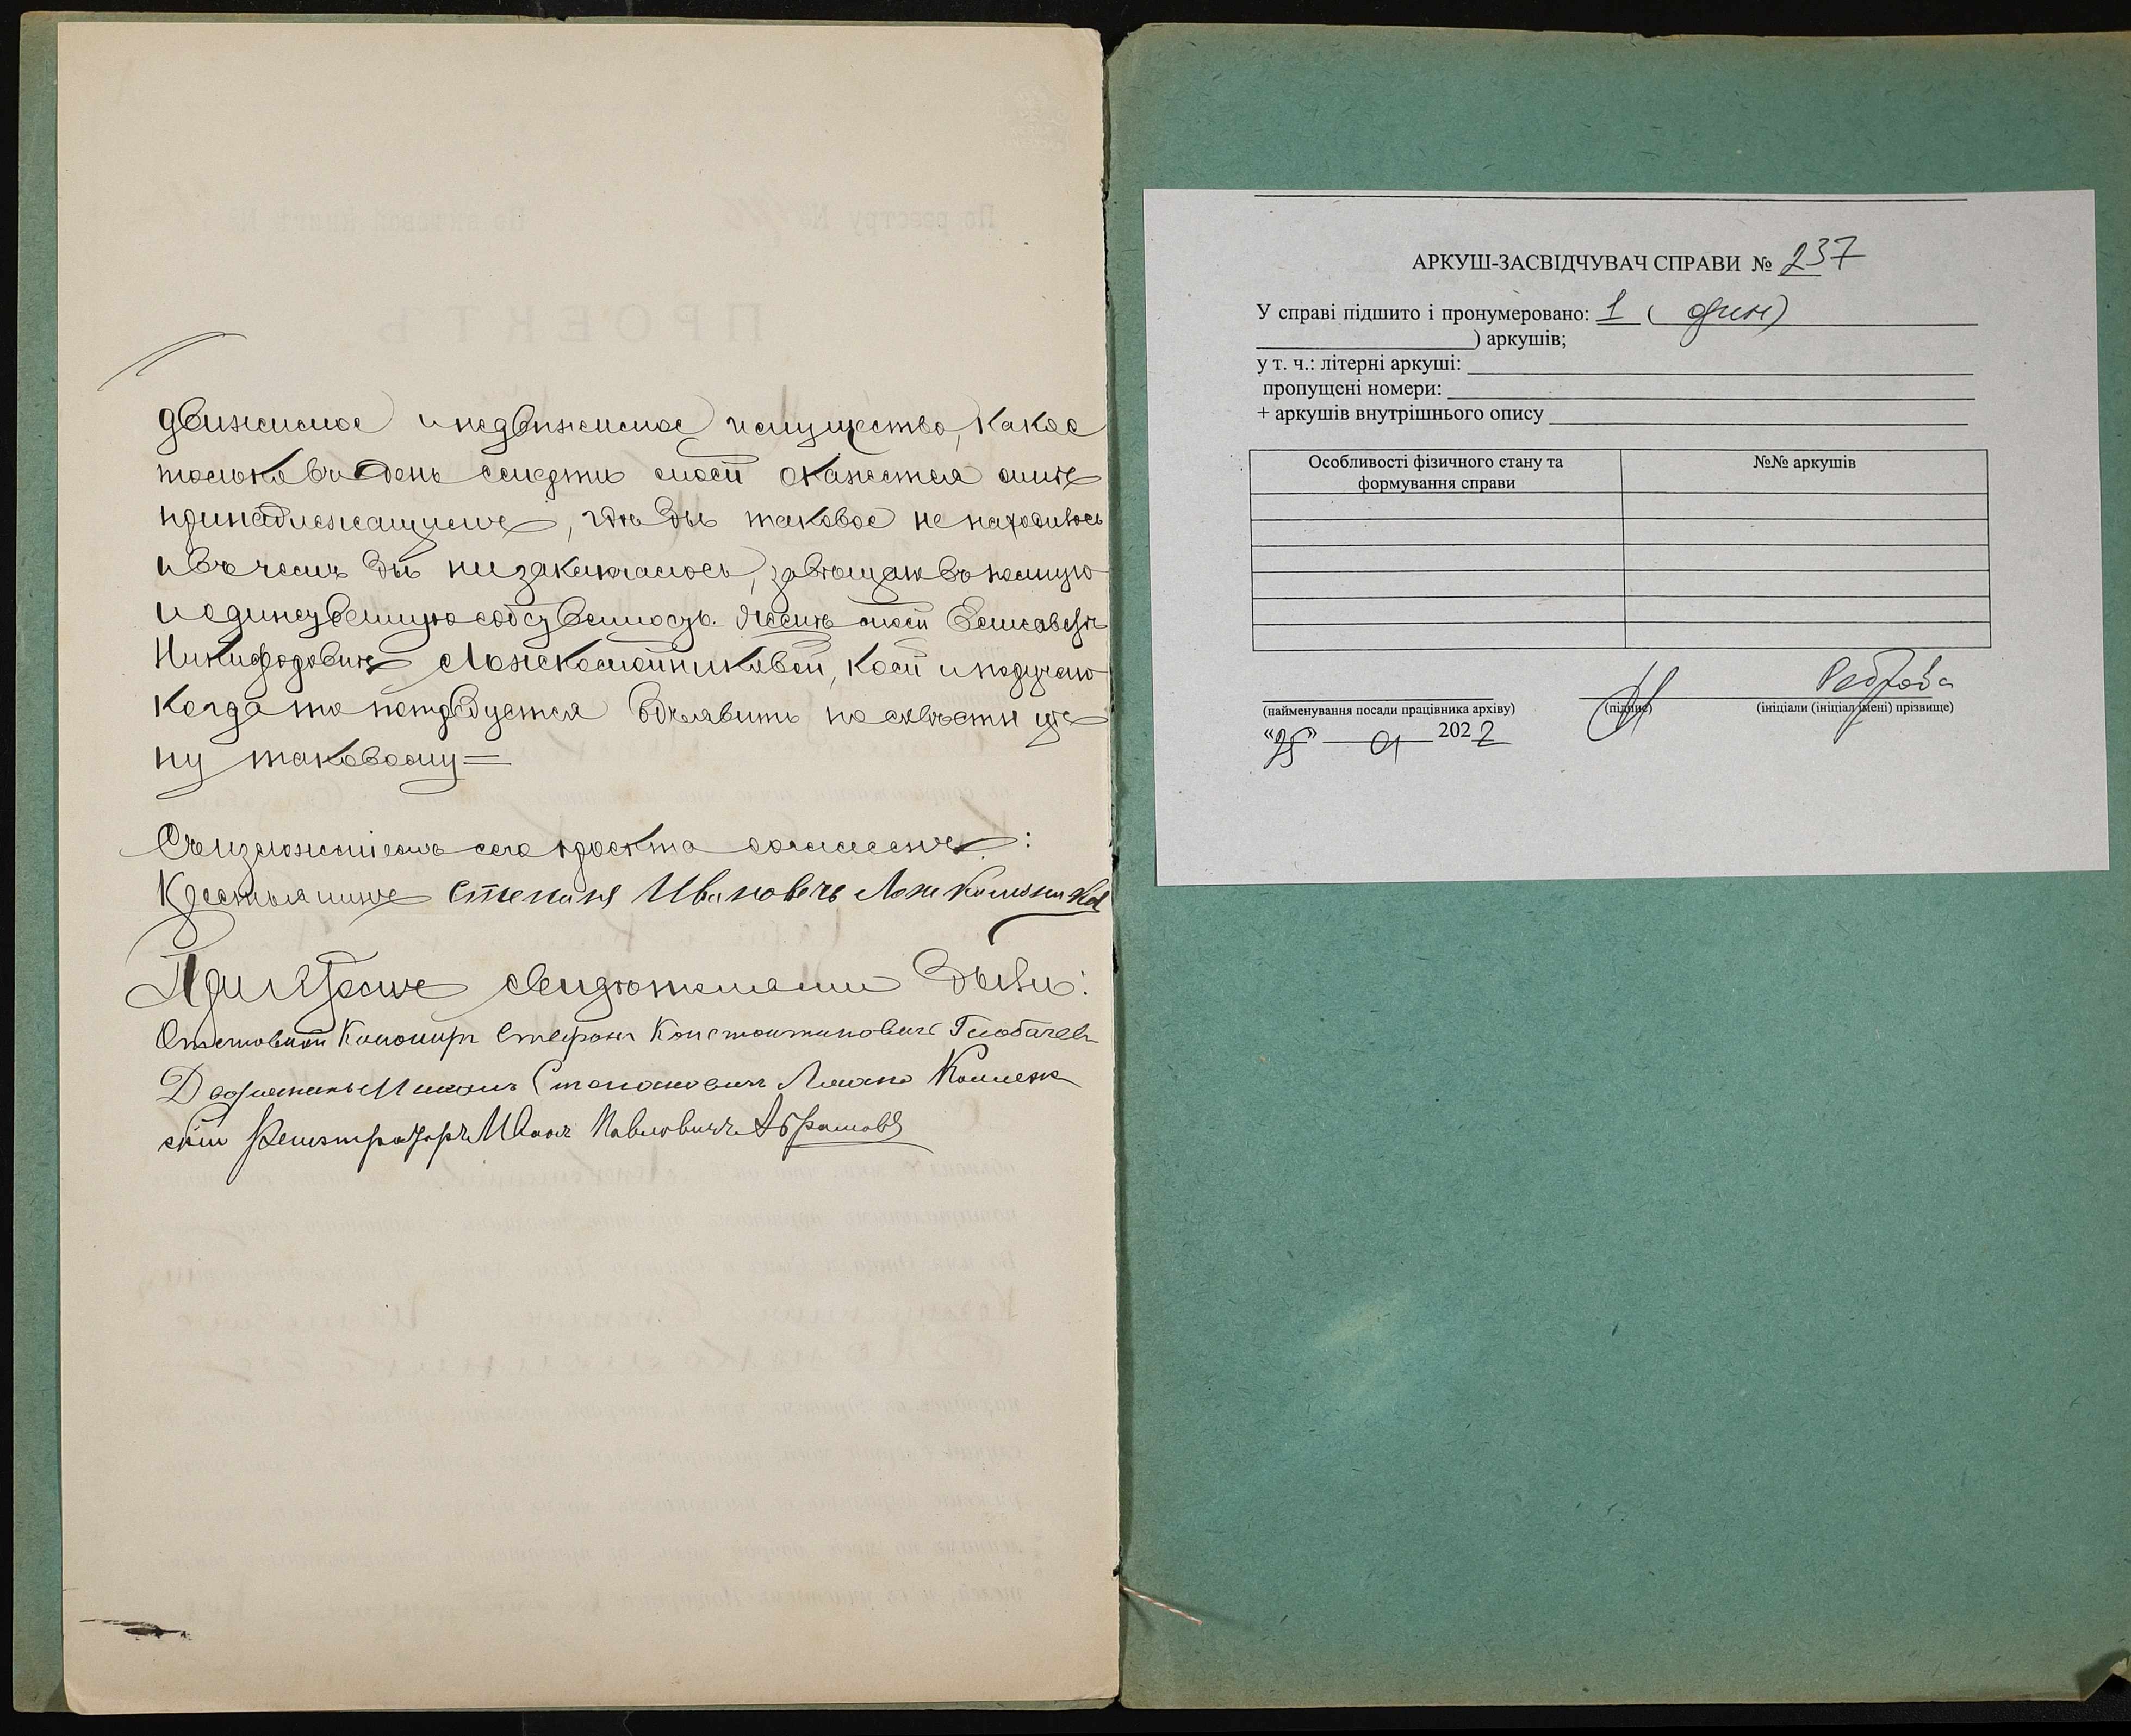 движимое и недвижимое имущество, какое
только въ день смерти моей окажется мнѣ
принадлежащимъ, гдѣ бы таковое не находилось
и въ чемъ бы ни заключалось, завѣщаю въ полную
и единственную собственность женѣ моей Елисаветѣ
Никифоровнѣ Ложкомойниковой, коей и поручаю
когда то потребуется объявить по совѣсти цѣ-
ну таковому =
Съ изложеніемъ сего проекта согласенъ:
Крестьянинъ Степанъ Ивановичъ
При этомъ свидѣтелями были:
Отставной Стефанъ Константиновичъ
Дворянинъ Степановичъ Коллеж-
скій Регистраторъ Иванъ Павловичъ Абрамовъ
АРКУШ-ЗАСВІДЧУВАЧ СПРАВИ № 237
У справі підшито і пронумеровано: 1 ( один)
) аркушів;
у т. ч.: літерні аркуші:
пропущені номери:
+ аркушів внутрішнього опису
Особливості фізичного стану та формування справи
№№ аркушів
Реброва
(найменування посади працівника архіву) (підпис) (ініціали (ініціал імені) прізвище)
«25» 01 2022